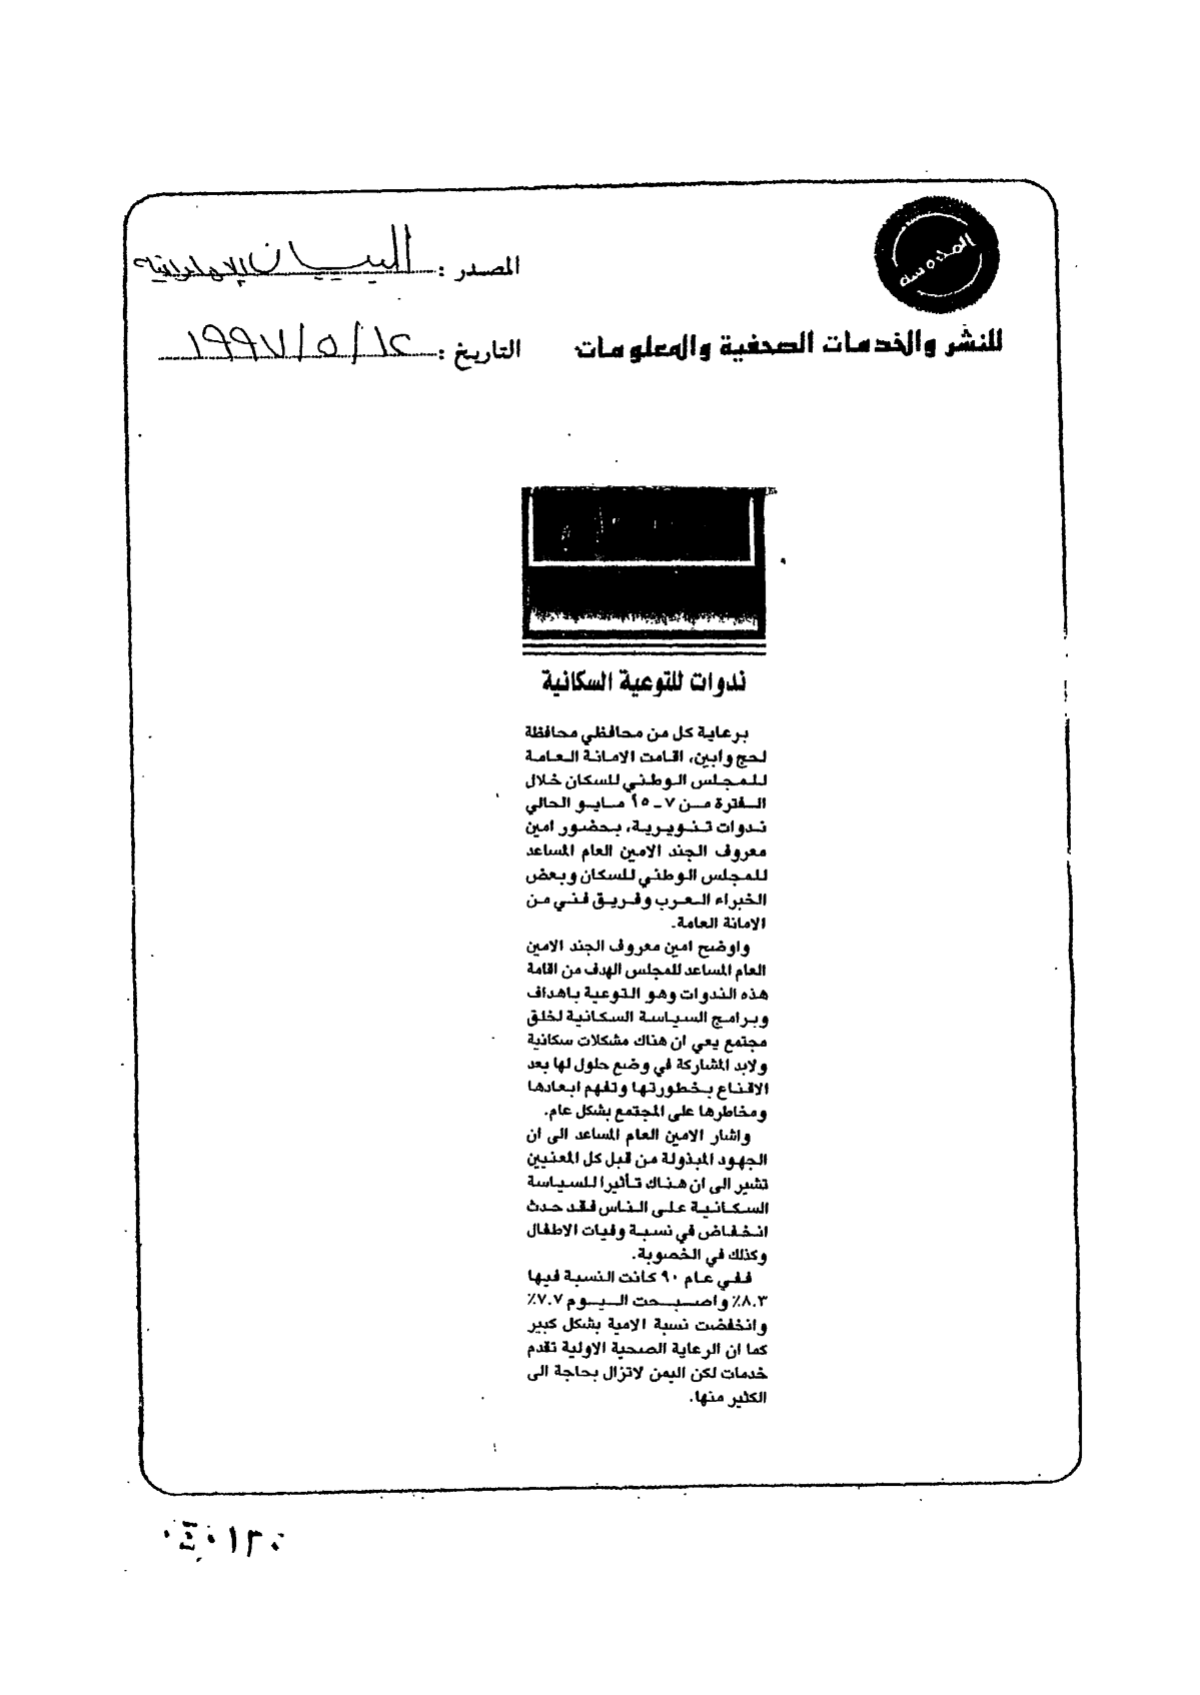 المحروسه
للنشر والخدمات الصحفية والمعلومات
المصدر : البيان الإماراتيه
التاريخ : ١٢/ ٥/ ١٩٩٧
ندوات للتوعية السكانية
برعاية كل من محافظي محافظة
لحج وابين، اقامت الامانة العامة
للمجلس الوطني للسكان خلال
الفترة من ٧ ـ ١٥ مايو الحالي
ندوات تنويرية، بحضور امين
معروف الجند الامين العام المساعد
للمجلس الوطني للسكان وبعض
الخبراء العرب وفريق فني من
الامانة العامة.
واوضح امين معروف الجند الامين
العام المساعد للمجلس الهدف من اقامة
هذه الندوات وهو التوعية باهداف
وبرامج السياسة السكانية لخلق
مجتمع يعي ان هناك مشكلات سكانية
ولابد المشاركة في وضع حلول لها بعد
الاقناع بخطورتها وتفهم ابعادها
ومخاطرها على المجتمع بشكل عام.
واشار الامين العام المساعد الى ان
الجهود المبذولة من قبل كل المعنيين
تشير الى ان هناك تأثيرا للسياسة
السكانية على الناس فقد حدث
انخفاض في نسبة وفيات الاطفال
وكذلك في الخصوبة.
ففي عام ٩٠ كانت النسبة فيها
٨.٣٪ واصبحت اليوم ٧.٧٪
وانخفضت نسبة الامية بشكل كبير
كما ان الرعاية الصحية الاولية تقدم
خدمات لكن اليمن لاتزال بحاجة الى
الكثير منها.